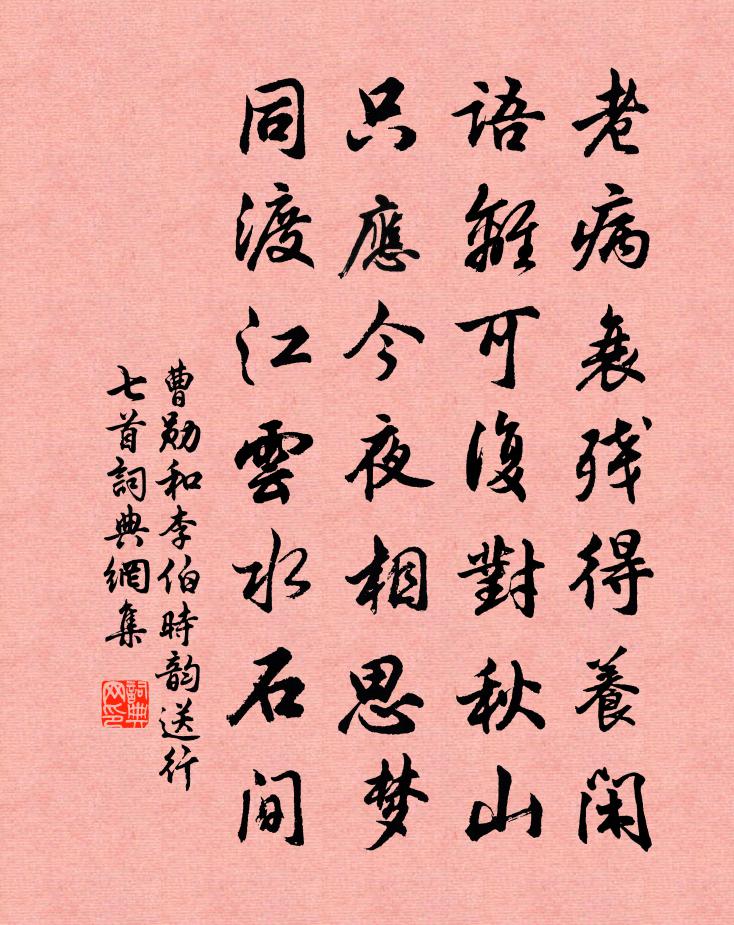 老病衰残得養閑
語離可復對秋山
只應今夜相思梦
同渡江雲水石間
曹勛和李伯時韵送行
七首詞典網集
詞典网印